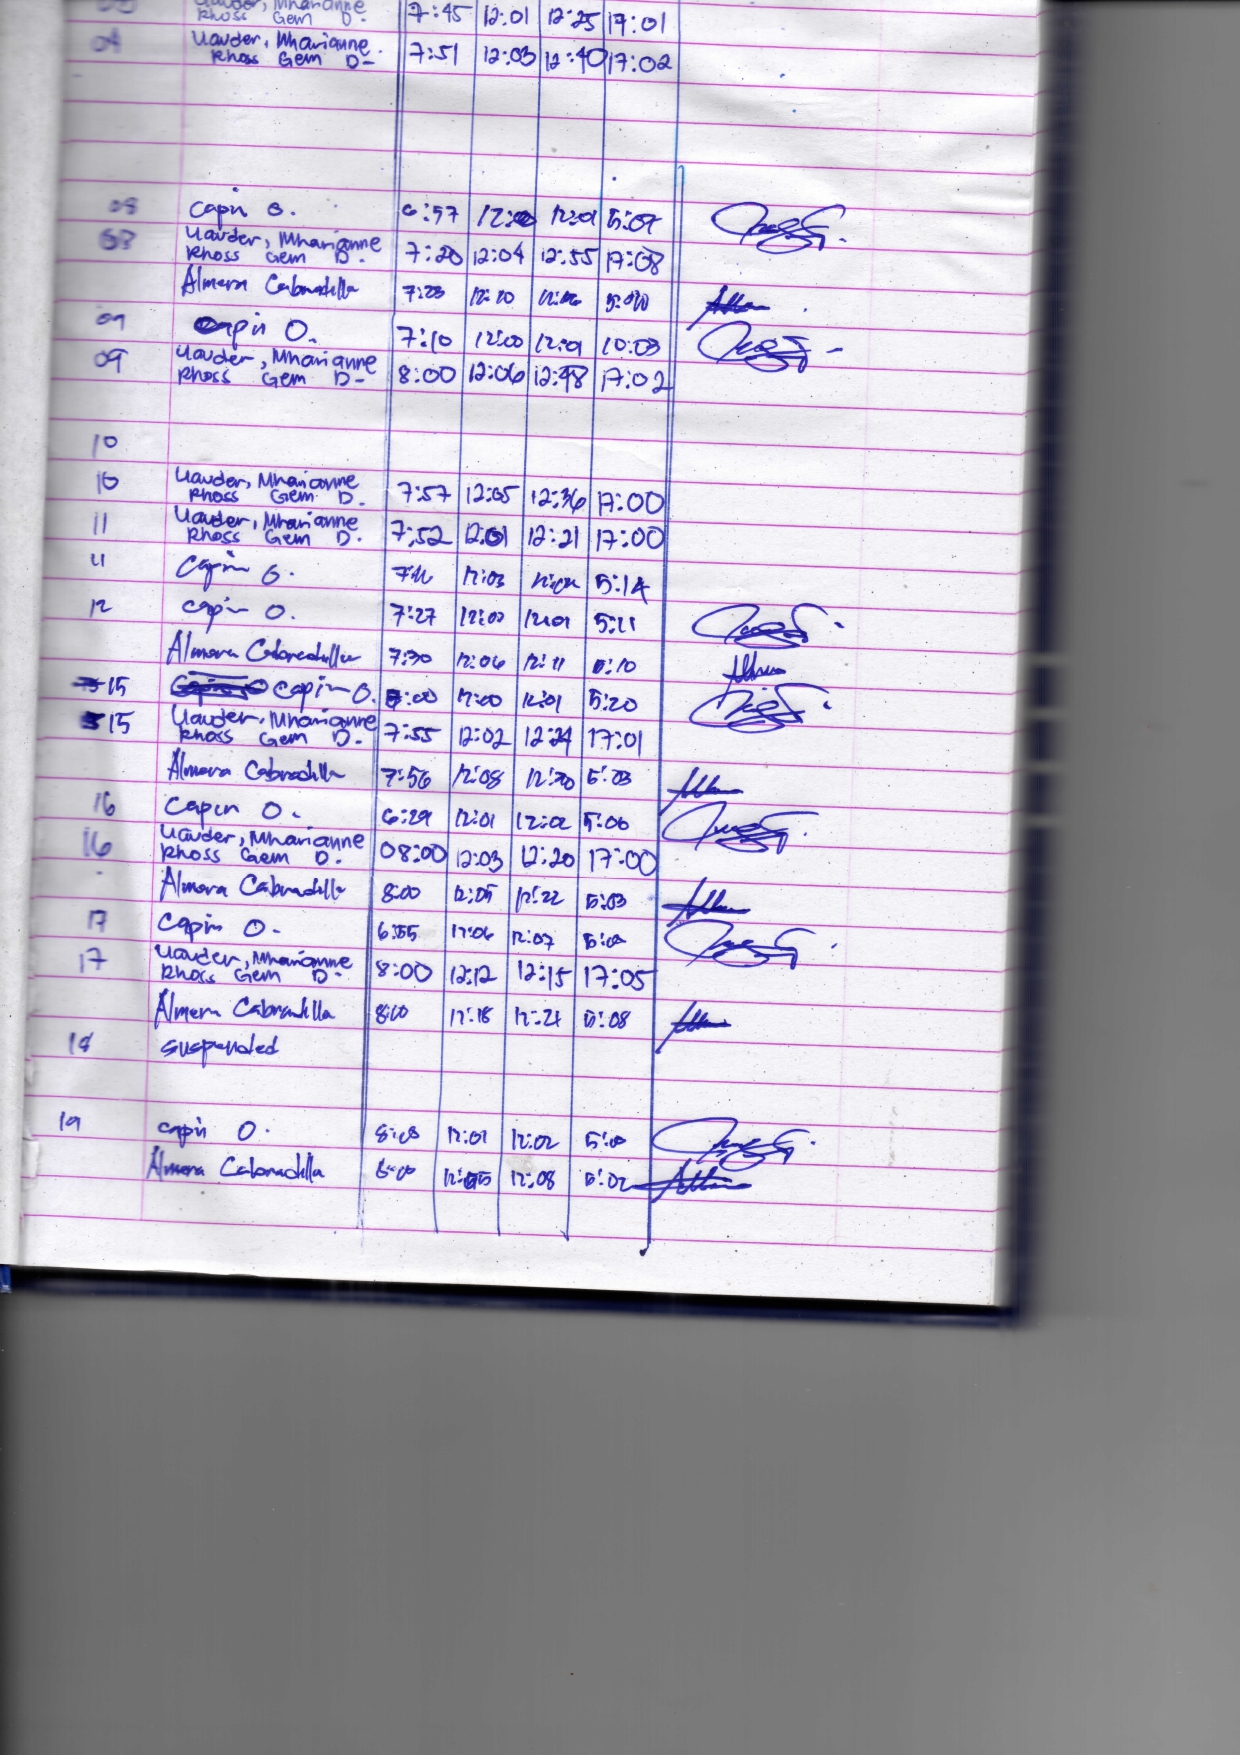 Rhoss Gem D. 7:45 12:01 12:25 17:01
04 Uavder, Mharianne 7:51 12:03 12:40 17:02
Rhoss Gem D-
08 Capin O. 6:57 12:01 5:07
08 Uavder, Mharianne 7:20 12:04 12:55 17:08
Rhoss Gem D.
Almera Cabradilla 7:23 12:10
09 Capin O. 7:10 12:00 12:01 10:03
09 Uavder, Mharianne 8:00 12:06 12:48 17:02
Rhoss Gem D-
10
10 Uavder, Mharianne 7:57 12:05 12:36 17:00
Rhoss Gem D.
11 Uavder, Mharianne 7:52 12:01 12:21 17:00
Rhoss Gem D.
11 Capin O. 12:03 5:14
12 Capin O. 7:27 12:00 12:01 5:11
Almera Cabradilla 7:30 12:06 12:11 5:10
15 Capin O. 12:00 12:01 5:20
15 Uavder, Mharianne 7:55 12:02 12:24 17:01
Rhoss Gem D.
Almera Cabradilla 7:56 12:08 12:20 5:03
16 Capin O. 6:29 12:01 12:02 5:00
16 Uavder, Mharianne 08:00 12:03 12:20 17:00
Rhoss Gem D.
Almera Cabradilla 8:00 12:05 12:22 5:03
17 Capin O. 6:55 12:06 12:07
17 Uavder, Mharianne 8:00 12:12 12:15 17:05
Rhoss Gem D-
Almera Cabradilla 8:00 12:18 12:21 5:08
18 suspended
19 Capin O. 12:01 12:02
Almera Cabradilla 12:05 12:08 5:02